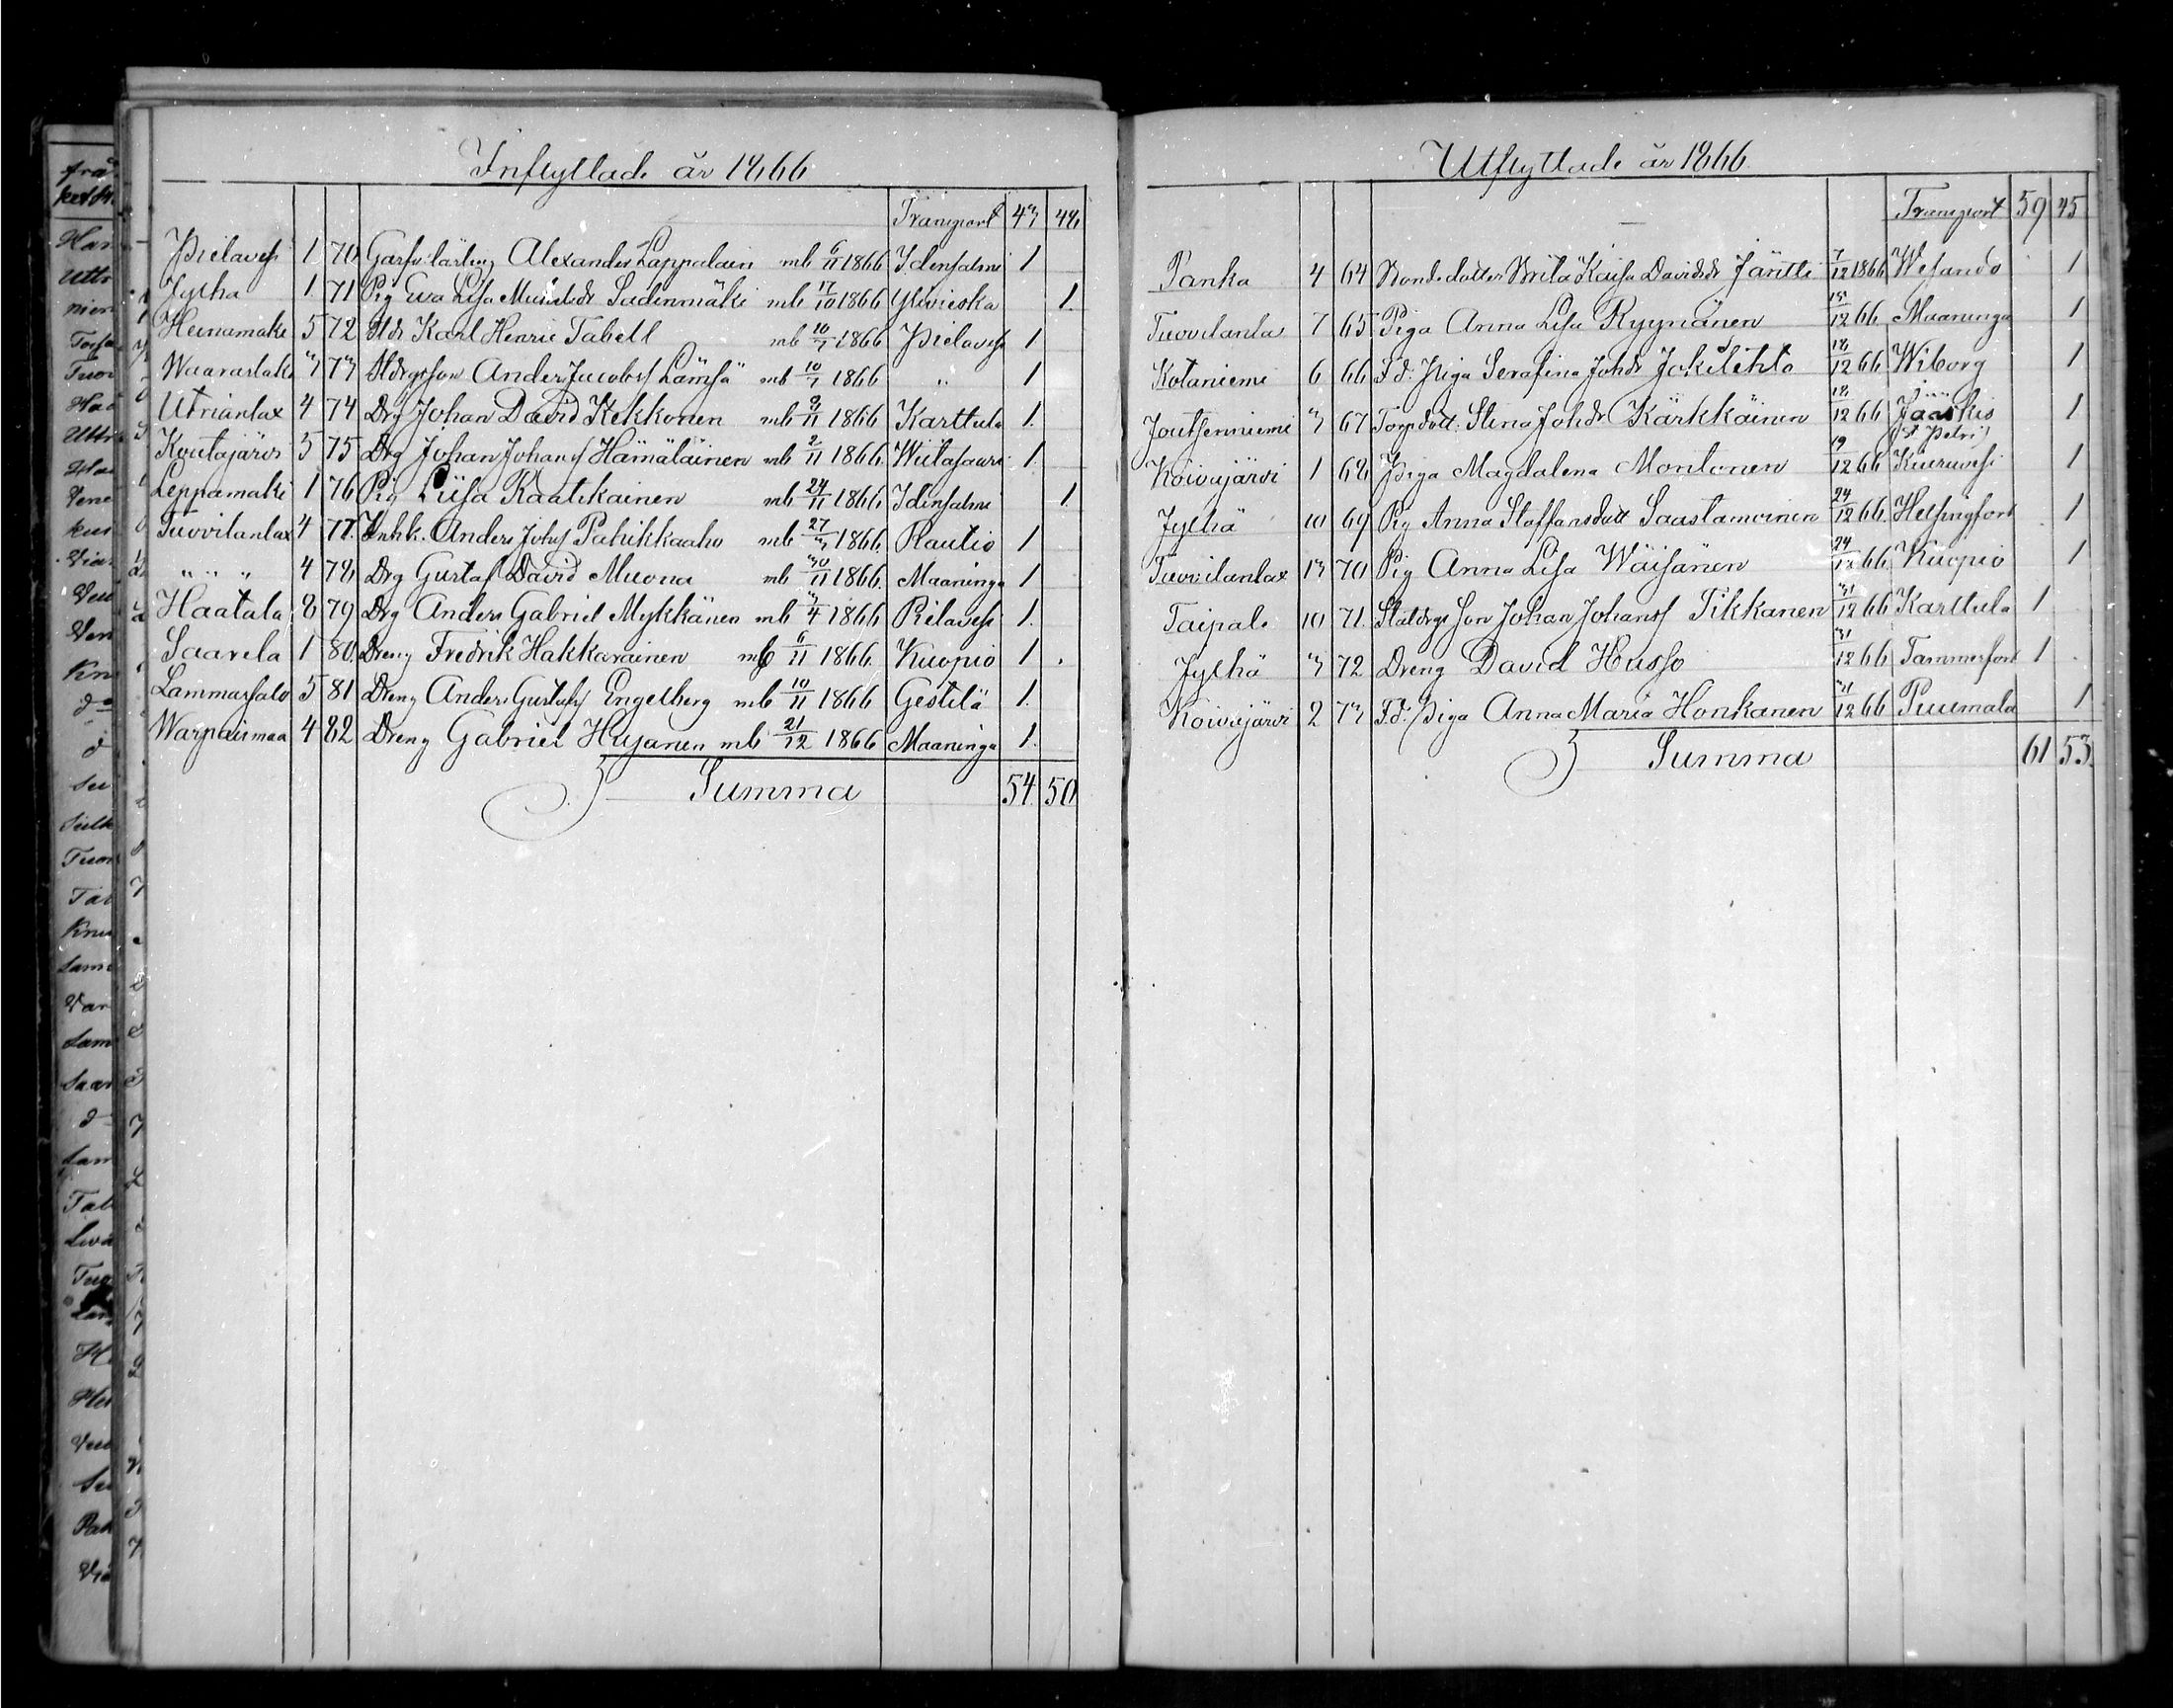 Inflyttade år 1866
Transport 43 48
Pielavesi 1 70 Garfv. lärling Alexander Lappalain mb 6/11 1866 Idensalmi 1
Jylhä 1 71 Pig Eva Lisa Sadinmäki mb 17/10 1866 Ylivieska 1
Heinamäki 5 72 Karl Henric Tabell mb 10/7 1866 Pielavesi 1
Waaraslaks 3 73 Anders Jacobss Lämsä mb 10/7 1866 " 1
Utrianlax 4 74 Drg Johan David Kekkonen mb 9/11 1866 Karttula 1.
Koutajärvi 5 75 Drg Johan Johanss Hämäläinen mb 2/11 1866. Wiitasaari 1.
Leppämäki 1 76 Pig Liisa Raatikainen mb 24/11 1866 Idensalmi 1.
Tuovilanlax 4 77. Enkk. Anders Johss Pahikkaaho mb 27/3 1866. Rautio 1
" " " 4 78 Drg Gustaf David Muona mb 30/11 1866. Maaninga 1
Haatala 8 79 Drg Anders Gabriel Mykkänen mb 3/4 1866 Pilavesi 1.
Saarela 1 80. Dreng Fredrik Hakkarainen mb 6/11 1866. Kuopio 1 .
Lammassalo 5 81 Dreng Anders Gustafss Engelberg mb 10/11 1866 Gestilä 1.
Warpaismaa 4 82 Dreng Gabriel Hujanen mb 21/12 1866 Maaninga 1.
Summa 54. 50
Utflyttade år 1866.
Transport 59 45
Panka 4 64 Bondedotter Brita Kaisa Davidsdr Jäntti 7/12 1866 Wesando 1
Tuovilanla 7 65 Piga Anna Lisa Ryynänen 15/12 66 Maaninga 1
Kotaniemi 6 66 F.d. Piga Serafina Johdr Jokilehto 18/12 66 Wiborg 1
Joutsenniemi 3 67 Torpdott. Stina Johdr Kärkkäinen 18/12 66 Jääskis 1
(St Petri)
Koivujärvi 1 68 Piga Magdalena Montonen 19/12 66 Kiuruvesi 1
Jylhä 10 69 Pig Anna Staffansdott Saastamoinen 24/12 66. Helsingfors 1
Tuovilanlax 13 70 Pig Anna Lisa Wäisänen 24/12 66 Kuopio 1
Taipale 10 71. Son Johan Johanss Tikkanen 31/12 66 Karttula 1
Jylhä 3 72 Dreng David Husso 31/12 66 Tammerfors 1
Koivujärvi 2 73 F.d. Piga Anna Maria Honkanen 31/12 66 Puumala 1
Summa 61 53.